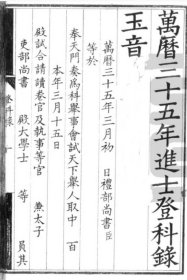 萬曆三十五年進士登科錄
玉音
萬曆三十五年三月初　日禮部尚書臣
等於
奉天門奏爲科舉事會試天下舉人取中　百
本年三月十五日
殿試合請讀卷官及執事等官　　兼太子
吏部尚書　殿大學士　等　員其